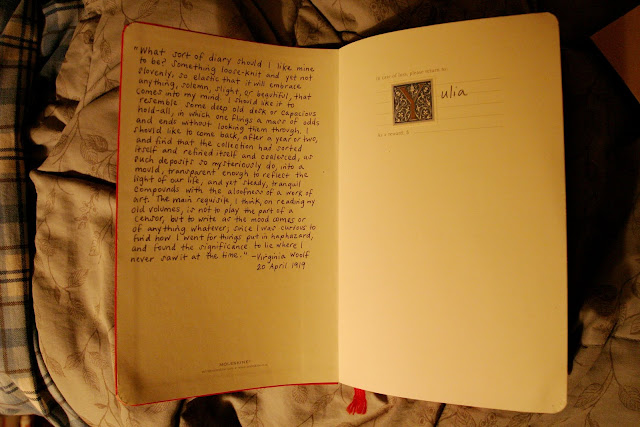 "What sort of diary should I like mine
to be? Something loose-knit and yet not
slovenly, so elastic that it will embrace
anything, solemn, slight, or beautiful, that
comes into my mind. I should like it to
resemble some deep old desk or capacious
hold-all, in which one flings a mass of odds
and ends without looking them through. I
should like to come back, after a year or two,
and find that the collection had sorted
itself and refined itself and coalesced, as
such deposits so mysteriously do, into a
mould, transparent enough to reflect the
light of our life, and yet steady, tranquil
compounds with the aloofness of a work of
art. The main requisite, I think, on reading my
old volumes, is not to play the part of a
censor, but to write as the mood comes or
of anything whatever; since I was curious to
find how I went for things put in haphazard,
and found the significance to lie where I
never saw it at the time." -Virginia Woolf
20 April 1919
MOLESKINE®
In case of loss, please return to:
Yulia
As a reward: $